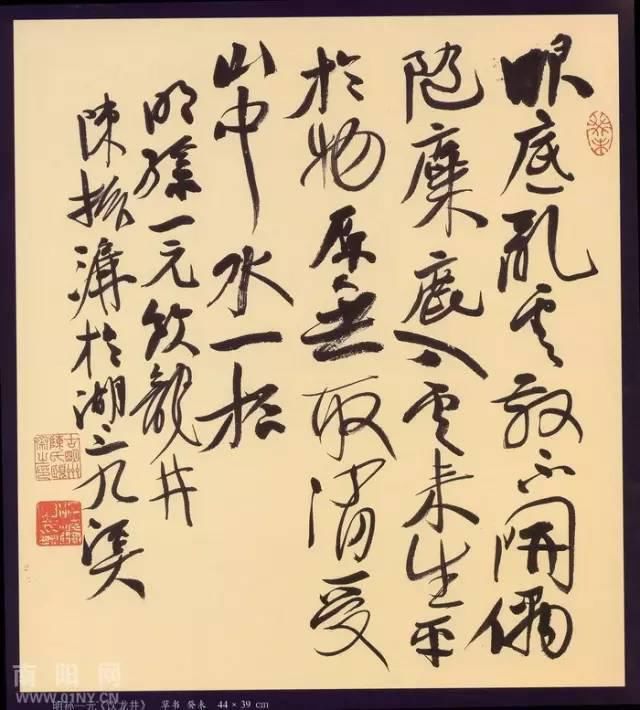 眼底乱云散不開偶
随麋鹿入云来生平
於物原無取消受
山中水一杯
明孫一元飲龍井
陳振濂於湖上九溪
癸未
南阳网
WWW.01NY.CN
明孙一元《饮龙井》 草书 癸未 44×39 cm